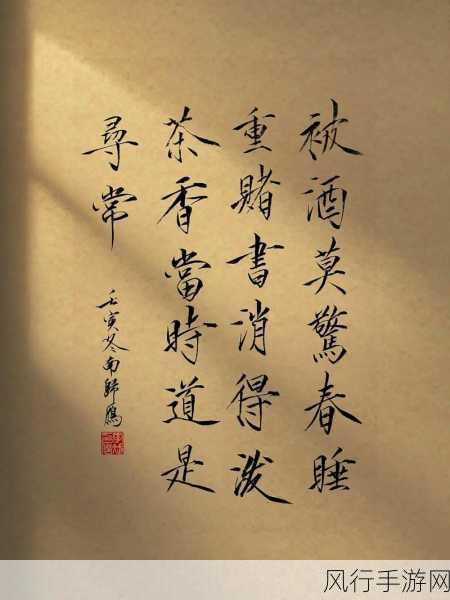 被酒莫驚春睡
重賭書消得潑
茶香當時道是
尋常
壬寅冬南歸鴈
风行手游网